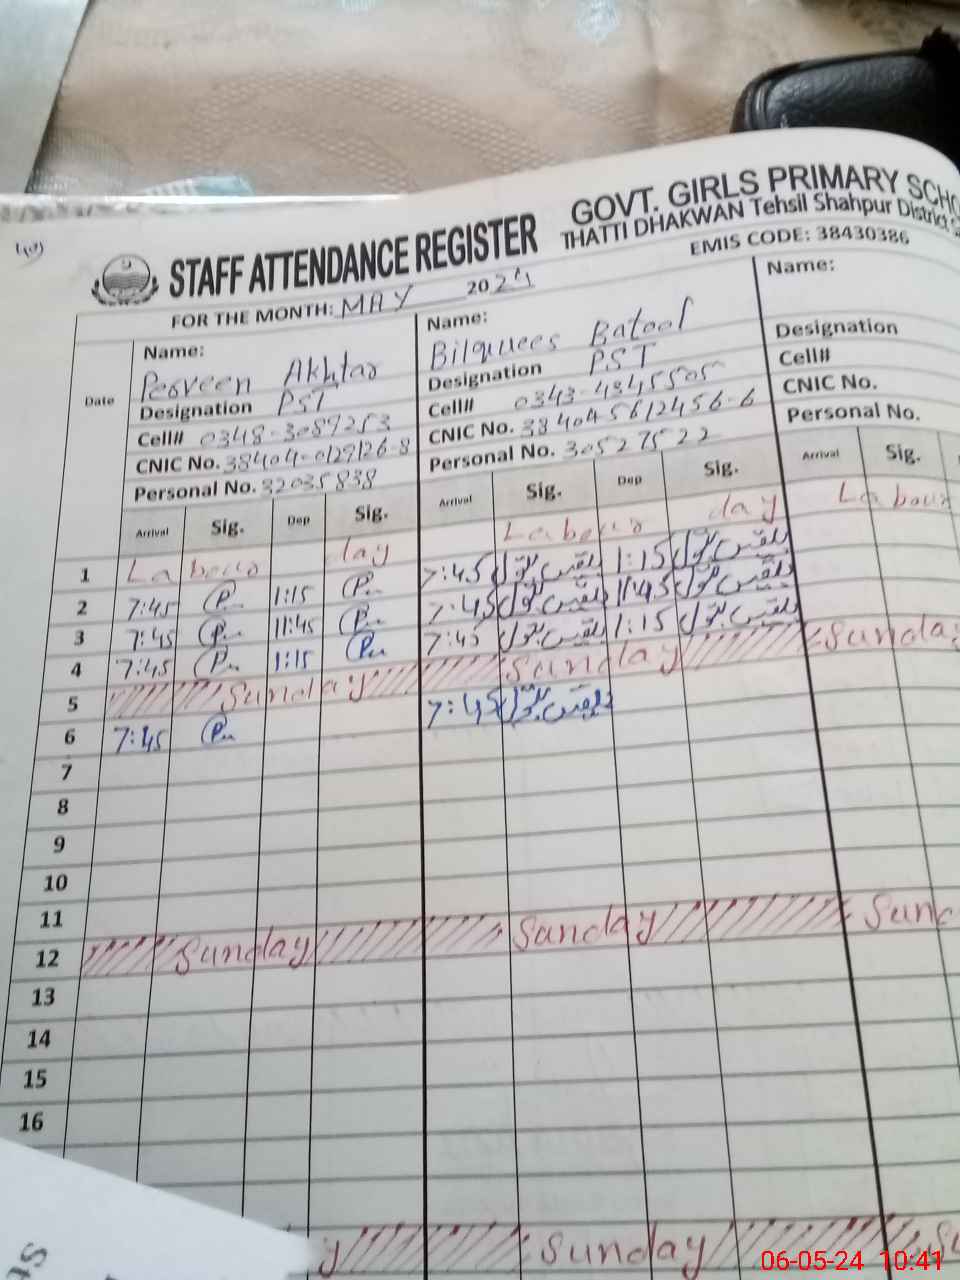 STAFF ATTENDANCE REGISTER
GOVT. GIRLS PRIMARY SCHO
THATTI DHAKWAN Tehsil Shahpur District S
EMIS CODE: 38430386
FOR THE MONTH: MAY 2024
Date
Name:
Perveen Akhtar
Designation PST
Cell# 0348-3089253
CNIC No. 38404-0129126-8
Personal No. 32035838
Name:
Bilquees Batool
Designation PST
Cell# 0343-4345505
CNIC No. 38404 5612456-6
Personal No. 30527522
Name:
Designation
Cell#
CNIC No.
Personal No.
Arrival Sig. Dep Sig. Arrival Sig. Dep Sig. Arrival Sig.
1 Labour day Labour day Labour
2 7:45 1:15 7:45 بلقیس بتول 1:15 بلقیس بتول
3 7:45 11:45 7:45 بلقیس بتول 11:45 بلقیس بتول
4 7:45 1:15 7:45 بلقیس بتول 1:15 بلقیس بتول
5 Sunday Sunday Sunday
6 7:45 7:45 بلقیس بتول
7
8
9
10
11
12 Sunday Sunday Sund
13
14
15
16
y Sunday Su
St
06-05-24 10:41